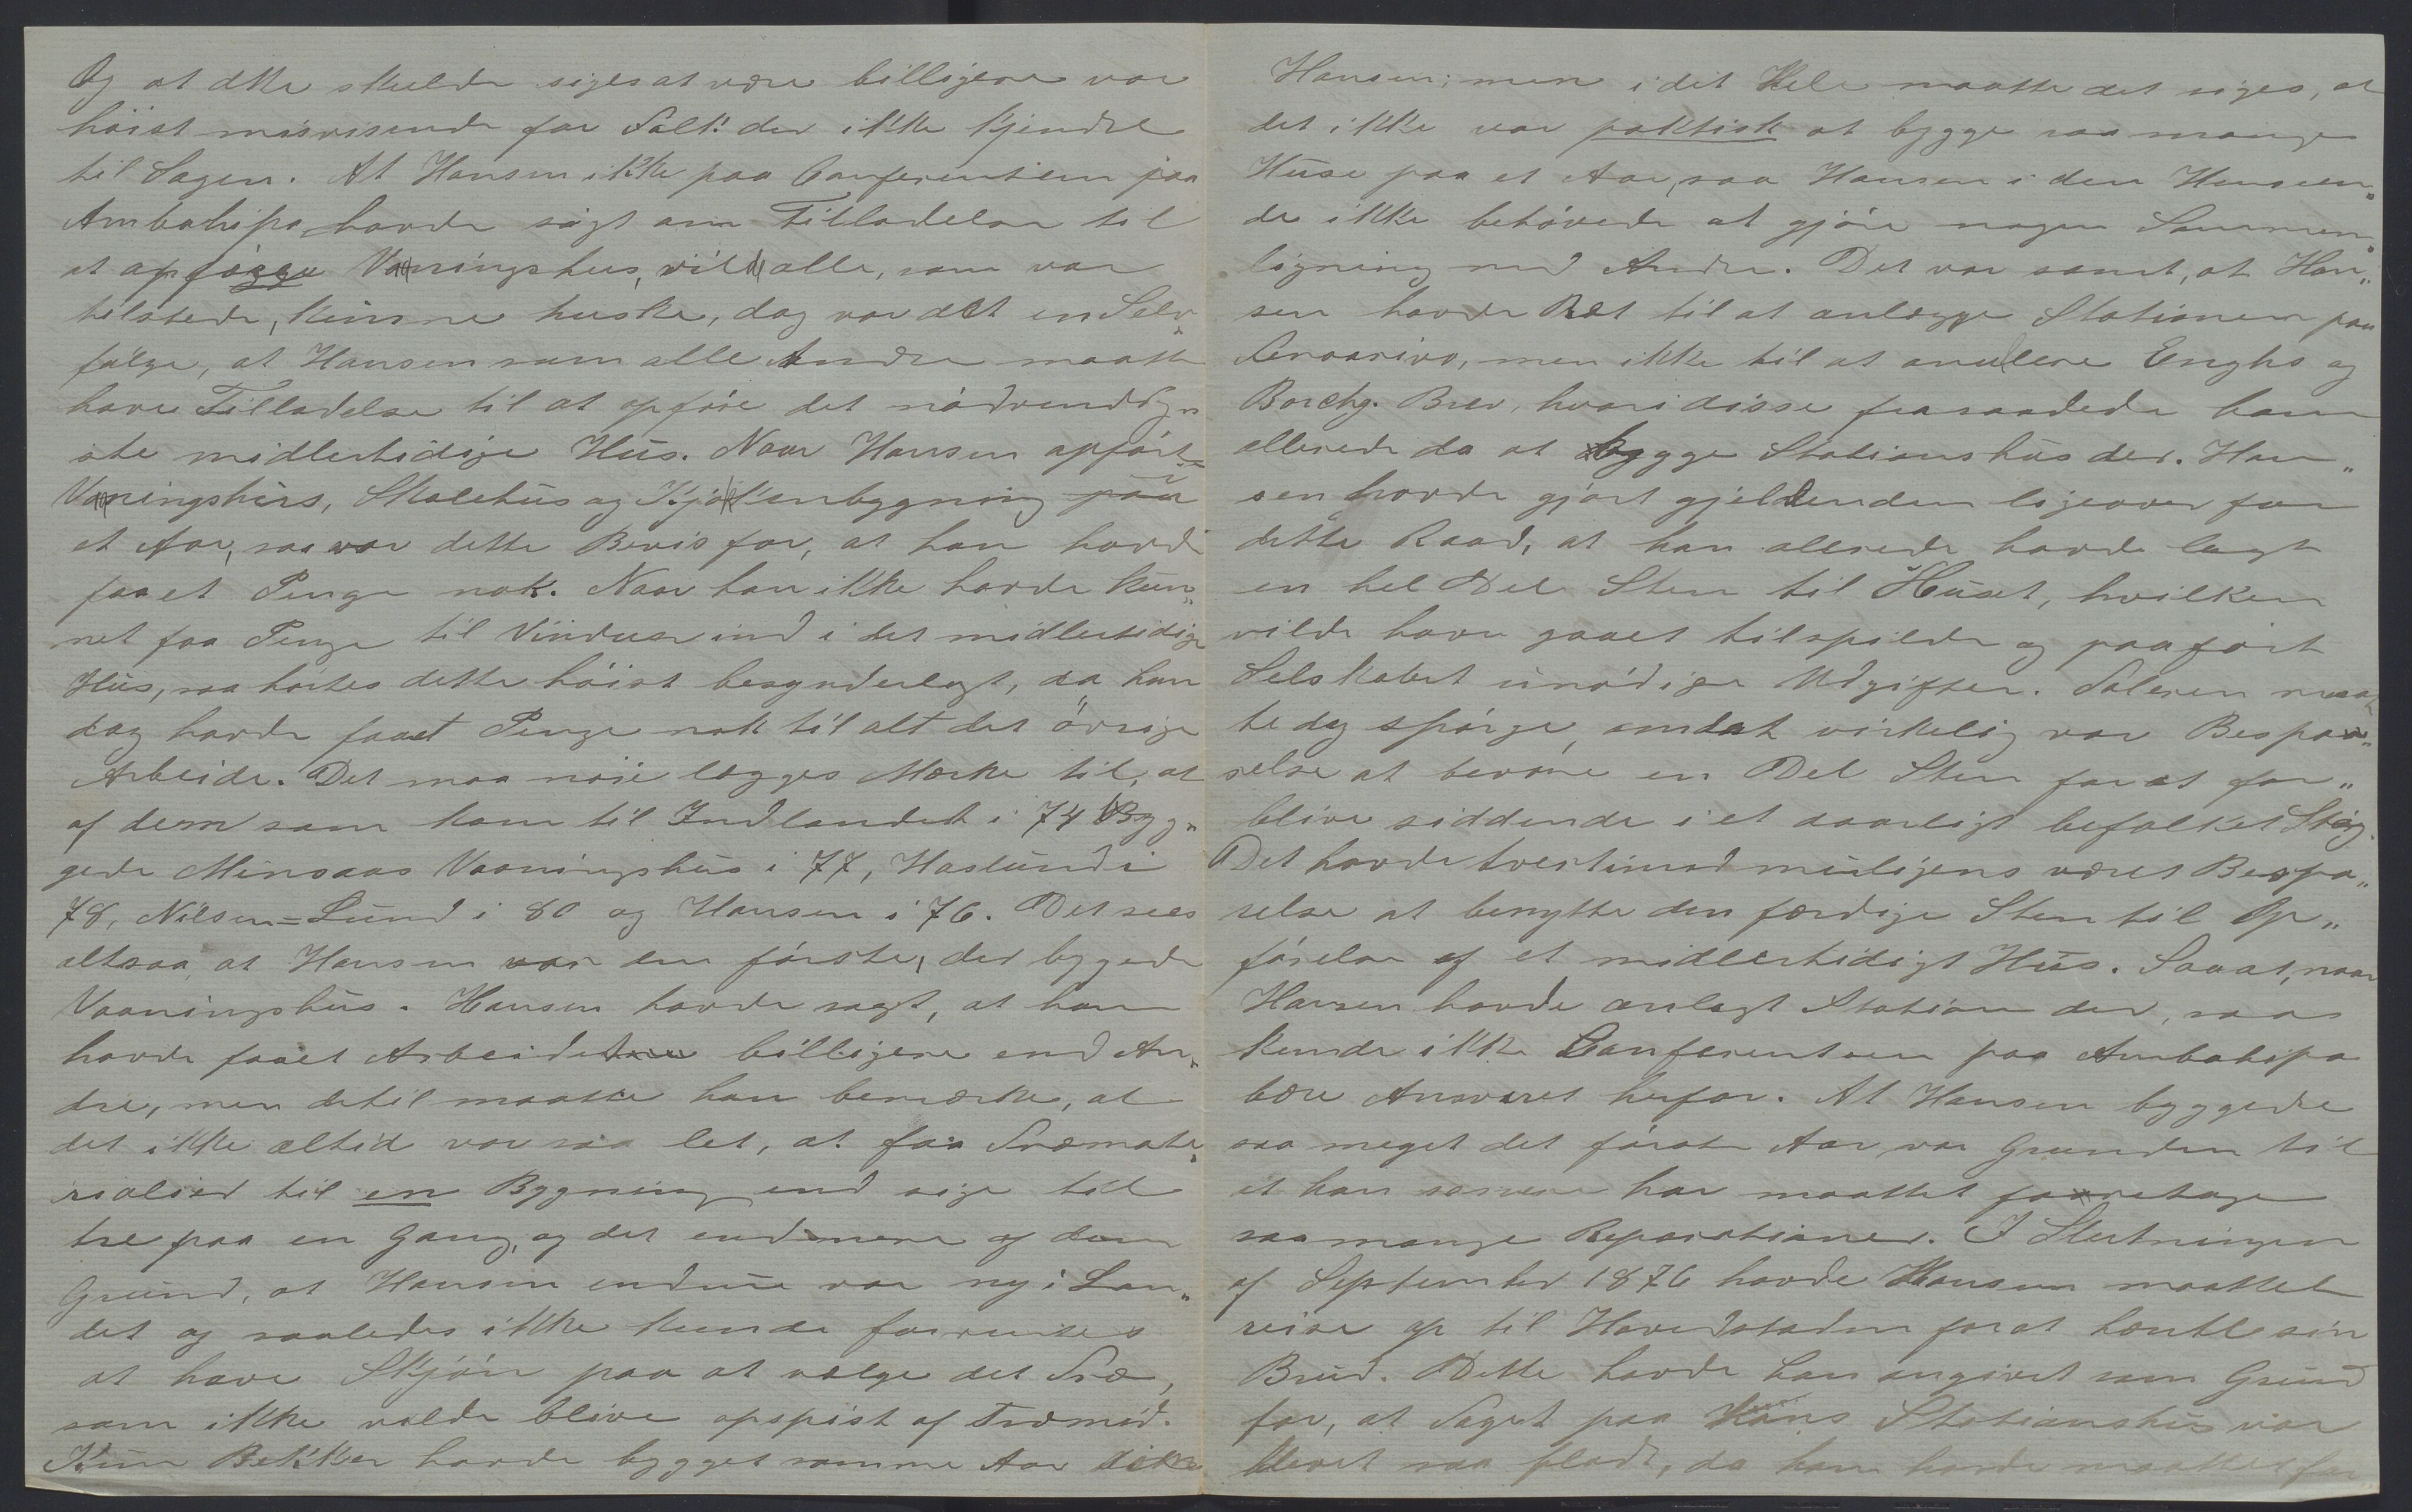 Og at dette skulde siges at være billigere var
höist misvisende for Folk der ikke kjendte
til Sagen. At Hansen ikke paa Conferentsen paa
Ambatofipa havde sögt om Tilladelse til
at opföre Vaaningshus, vil alle, som var
tilstede, kunne huske, dog var det en Selv„
fölge, at Hansen som alle Andre maatte
have Tilladelse til at opföre det nödvendig„
ste midlertidige Hus. Naar Hansen opförte
Vaaningshus, Skolehus og Kjökkenbygning paa
et Aar, saa var dette Bevis for, at han havde
faaet Penge nok. Naar han ikke havde kun„
net faa Penge til Vinduer ind i det midlertidige
Hus, saa hörtes dette höist besynderligt, da han
dog havde faaet Penge nok til alt det övrige
Arbeide. Det maa nöie lægges Mærke til, at
af dem som kom til Indlandet i 74 byg„
gede Minsaas Vaaningshus i 77, Haslund i
78, Nilsen=Lund i 80 og Hansen i 76. Det sees
altsaa, at Hansen var den förste, der byggede
Vaaningshus. Hansen havde sagt, at han
havde faaet Arbeidet billigere end An„
dre, men dertil maatte han bemærke, at
det ikke altid var saa let, at faa Træmate„
rialier til en Bygning end sige til
tre paa en Gang, og det end mere af den
Grund, at Hansen endnu var ny i Lan„
det og saaledes ikke kunde forventes
at have Skjön paa at vælge det Træ,
som ikke vilde blive opspist af Træmid.
Kun Bekker havde bygget samme Aar ikke
Hansen; men i det Hele maatte det siges, at
det ikke var paktisk at bygge saa mange
Huse paa et Aar, saa Hansen i den Henseen„
de ikke behövede at gjöre nogen Sammen„
ligning med Andre. Det var sandt, at Han„
sen havde Ret til at anlægge Stationen paa
Fenoarivo, men ikke til at anullere Enghs og
Borchg. Brev, hvori disse fraraadede ham
allerede da at bygge Stationshus der. Han„
sen havde gjort gjeldenden ligeover for
dette Raad, at han allerede havde lagt
en hel Del Sten til Huset, hvilken
vilde have gaaet tilspilde og paaført
Selskabet unödige Udgifter. Taleren maat„
te dog spörge, om det virkelig var Bespa„
relse at bevare en Del Sten for at for„
blive siddende i et daarligt befolket Strög.
Det havde tvertimod muligens været Bespa„
relse at benytte den færdige Sten til Op„
förelse af et midlertidigt Hus. Saa at, naar
Hansen havde anlagt Station der, saa
kunde ikke Conferentsen paa Ambatofipa
bære Ansvaret herfor. At Hansen byggede
saa meget det förste Aar var Grunden til
at han senere har maattet foretage
saa mange Reparationer. I Slutningen
af September 1876 havde Hansen maattet
reise op til Hovedstaden for at hente sin
Brud. Dette havde han angivet som Grund
for, at Taget paa hans Stationshus var
blevet saa fladt, da han havde maattet faa